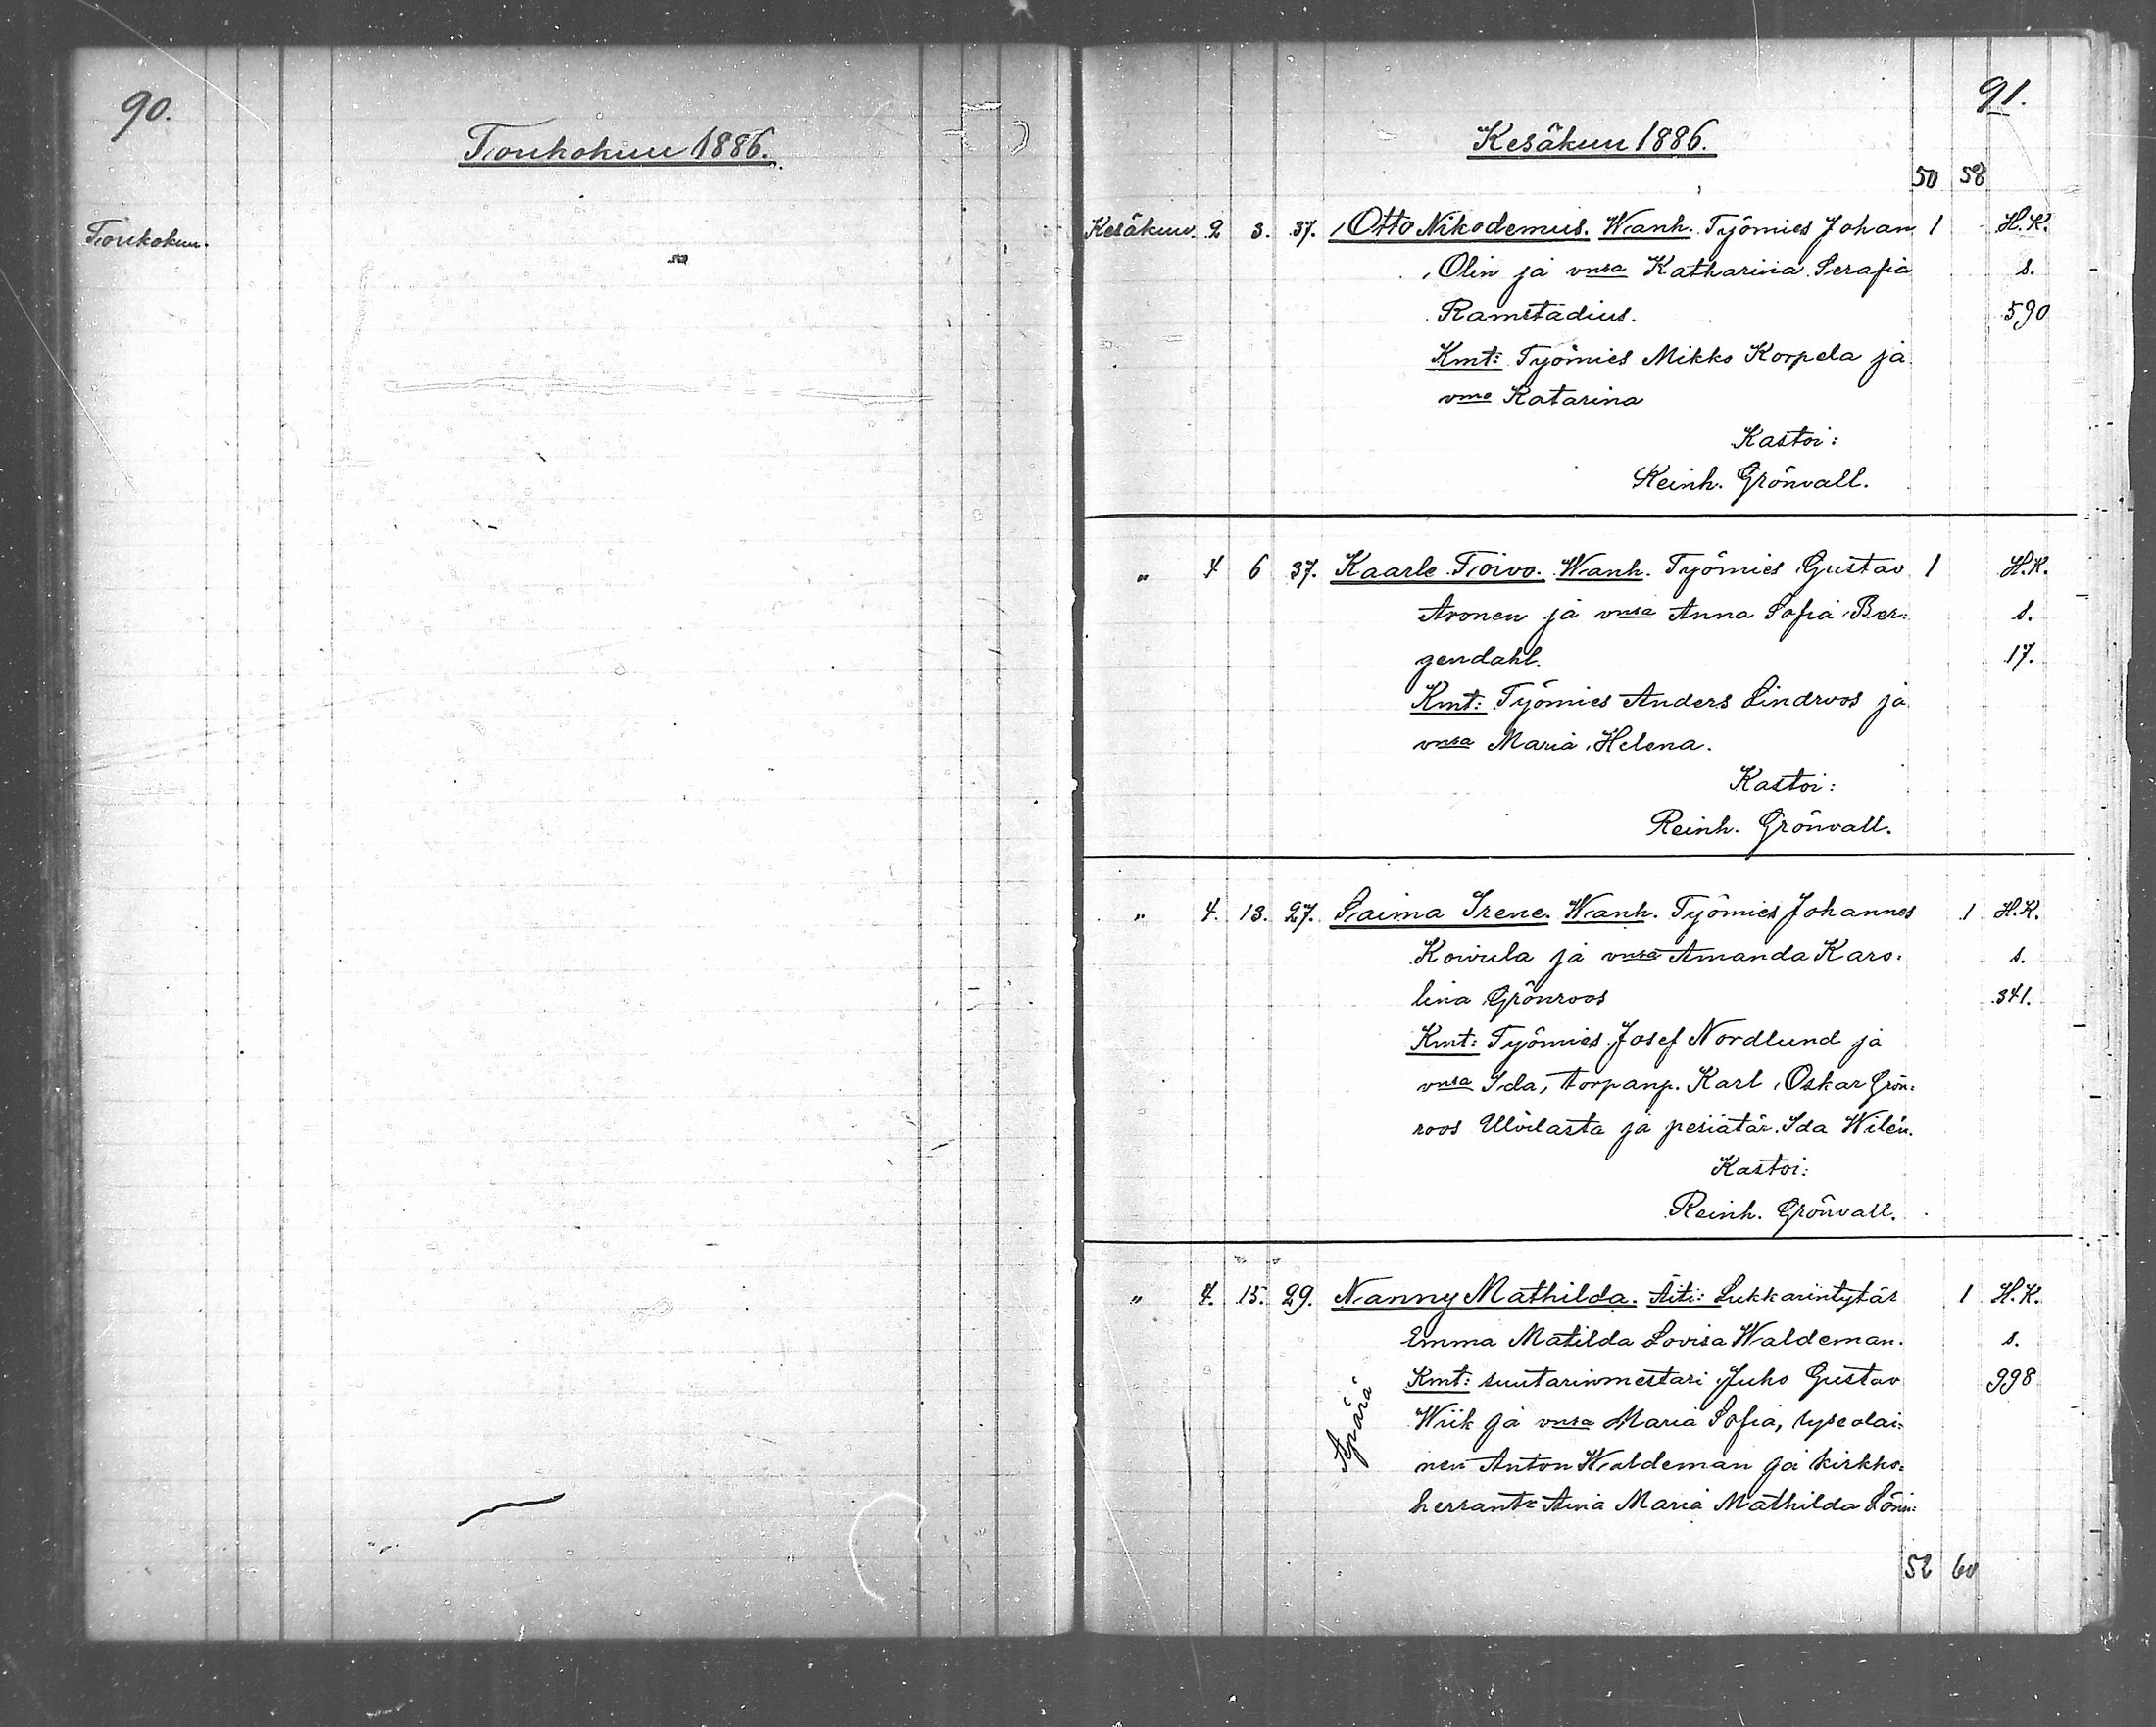 90.
Toukokuu 1886.
Toukokuu.
91.
Kesäkuu 1886.
50 58
Kesäkuu. 2 3. 37. Otto Nikodemus. Wanh. Työmies Johan 1 H.K.
Olin ja vmsa Katharina Serafia s.
Ramstadius. 590
Kmt: Työmies Mikko Korpela ja
vmo Katarina
Kastoi:
Reinh. Grönvall.
" 4 6 37. Kaarle Toivo. Wanh. Työmies Gustav 1 H.K.
Aronen ja vmsa Anna Sofia Ber= s.
gendahl. 17.
Kmt: Työmies Anders Lindroos ja
vmsa Maria Helena.
Kastoi:
Reinh. Grönvall.
" 4. 13. 27. Saima Irene. Wanh. Työmies Johannes 1 H.K.
Koivula ja vmsa Amanda Karo= s.
lina Grönroos 341.
Kmt: Työmies Josef Nordlund ja
vmsa Ida, torpanp. Karl Oskar Grön=
roos Ulvilasta ja Ida Wilén.
Kastoi:
Reinh. Grönvall.
" 4. 15. 29. Nanny Mathilda. Äiti: Lukkarintytär 1 H.K.
Emma Matilda Lovisa Waldeman. s.
Kmt: suutarinmestari Juho Gustav 998
Äpärä
Wiik ja vmsa Maria Sofia, lyseolai=
nen Anton Waldeman ja kirkko=
herrantr Aina Maria Mathilda Lönn=
52 60